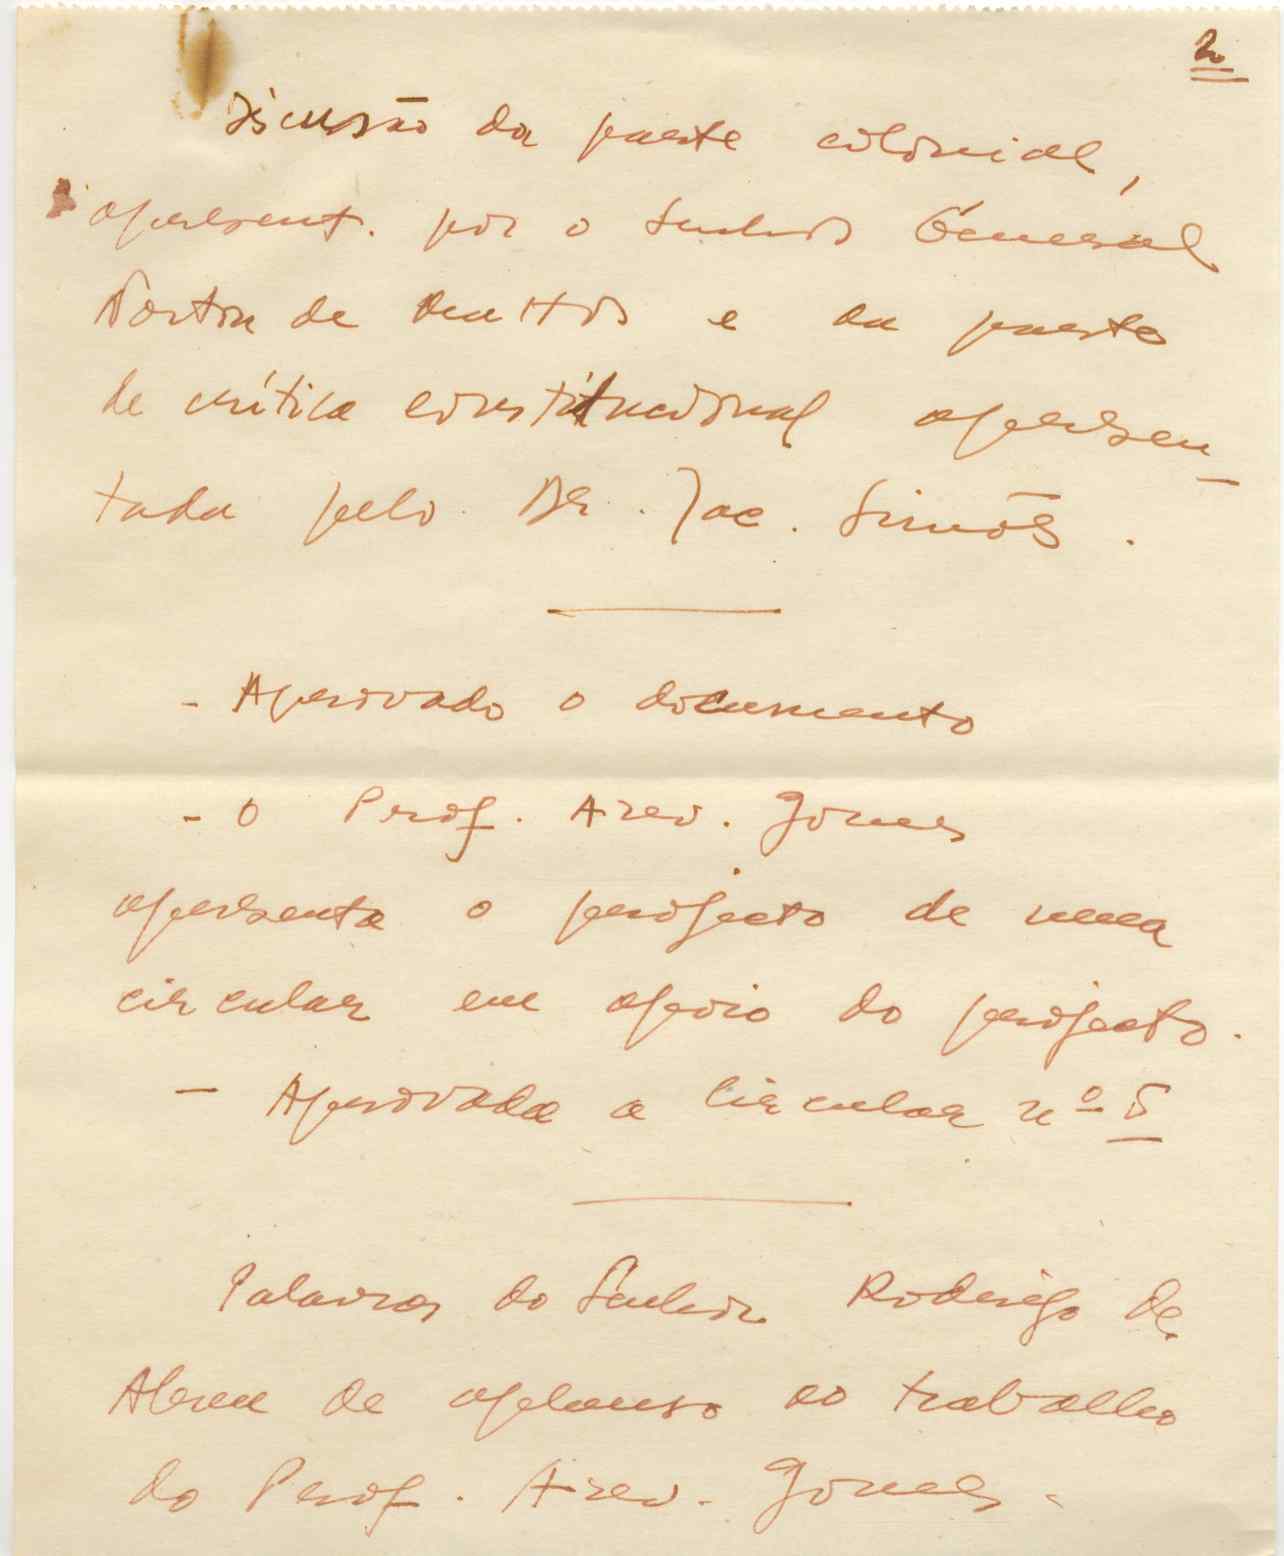 2º
Discussão da parte colonial,
apresent. por o Senhor General
Norton de Mattos e da parte
de crítica constitucional apresen-
tada pelo Dr. Jac. Simões.
- Aprovado o documento
- O Prof. Azev. Gomes
apresenta o projecto de uma
circular em apoio do projecto.
- Aprovada a circular nº 5
Palavras do Senhor Rodrigo de
Abreu de aplauso ao trabalho
do Prof. Azev. Gomes.